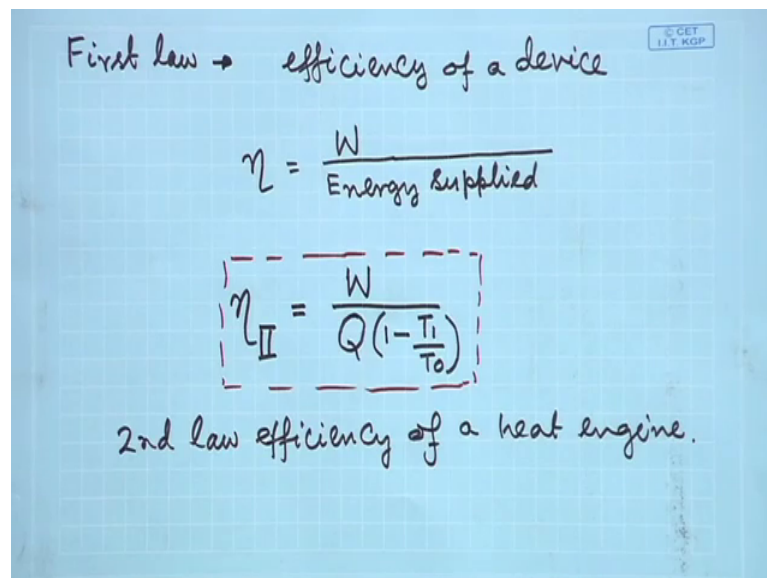 © CET
I.I.T. KGP
First law → efficiency of a device
η = W / Energy supplied
η_II = W / Q(1 - T1/T0)
2nd law efficiency of a heat engine.